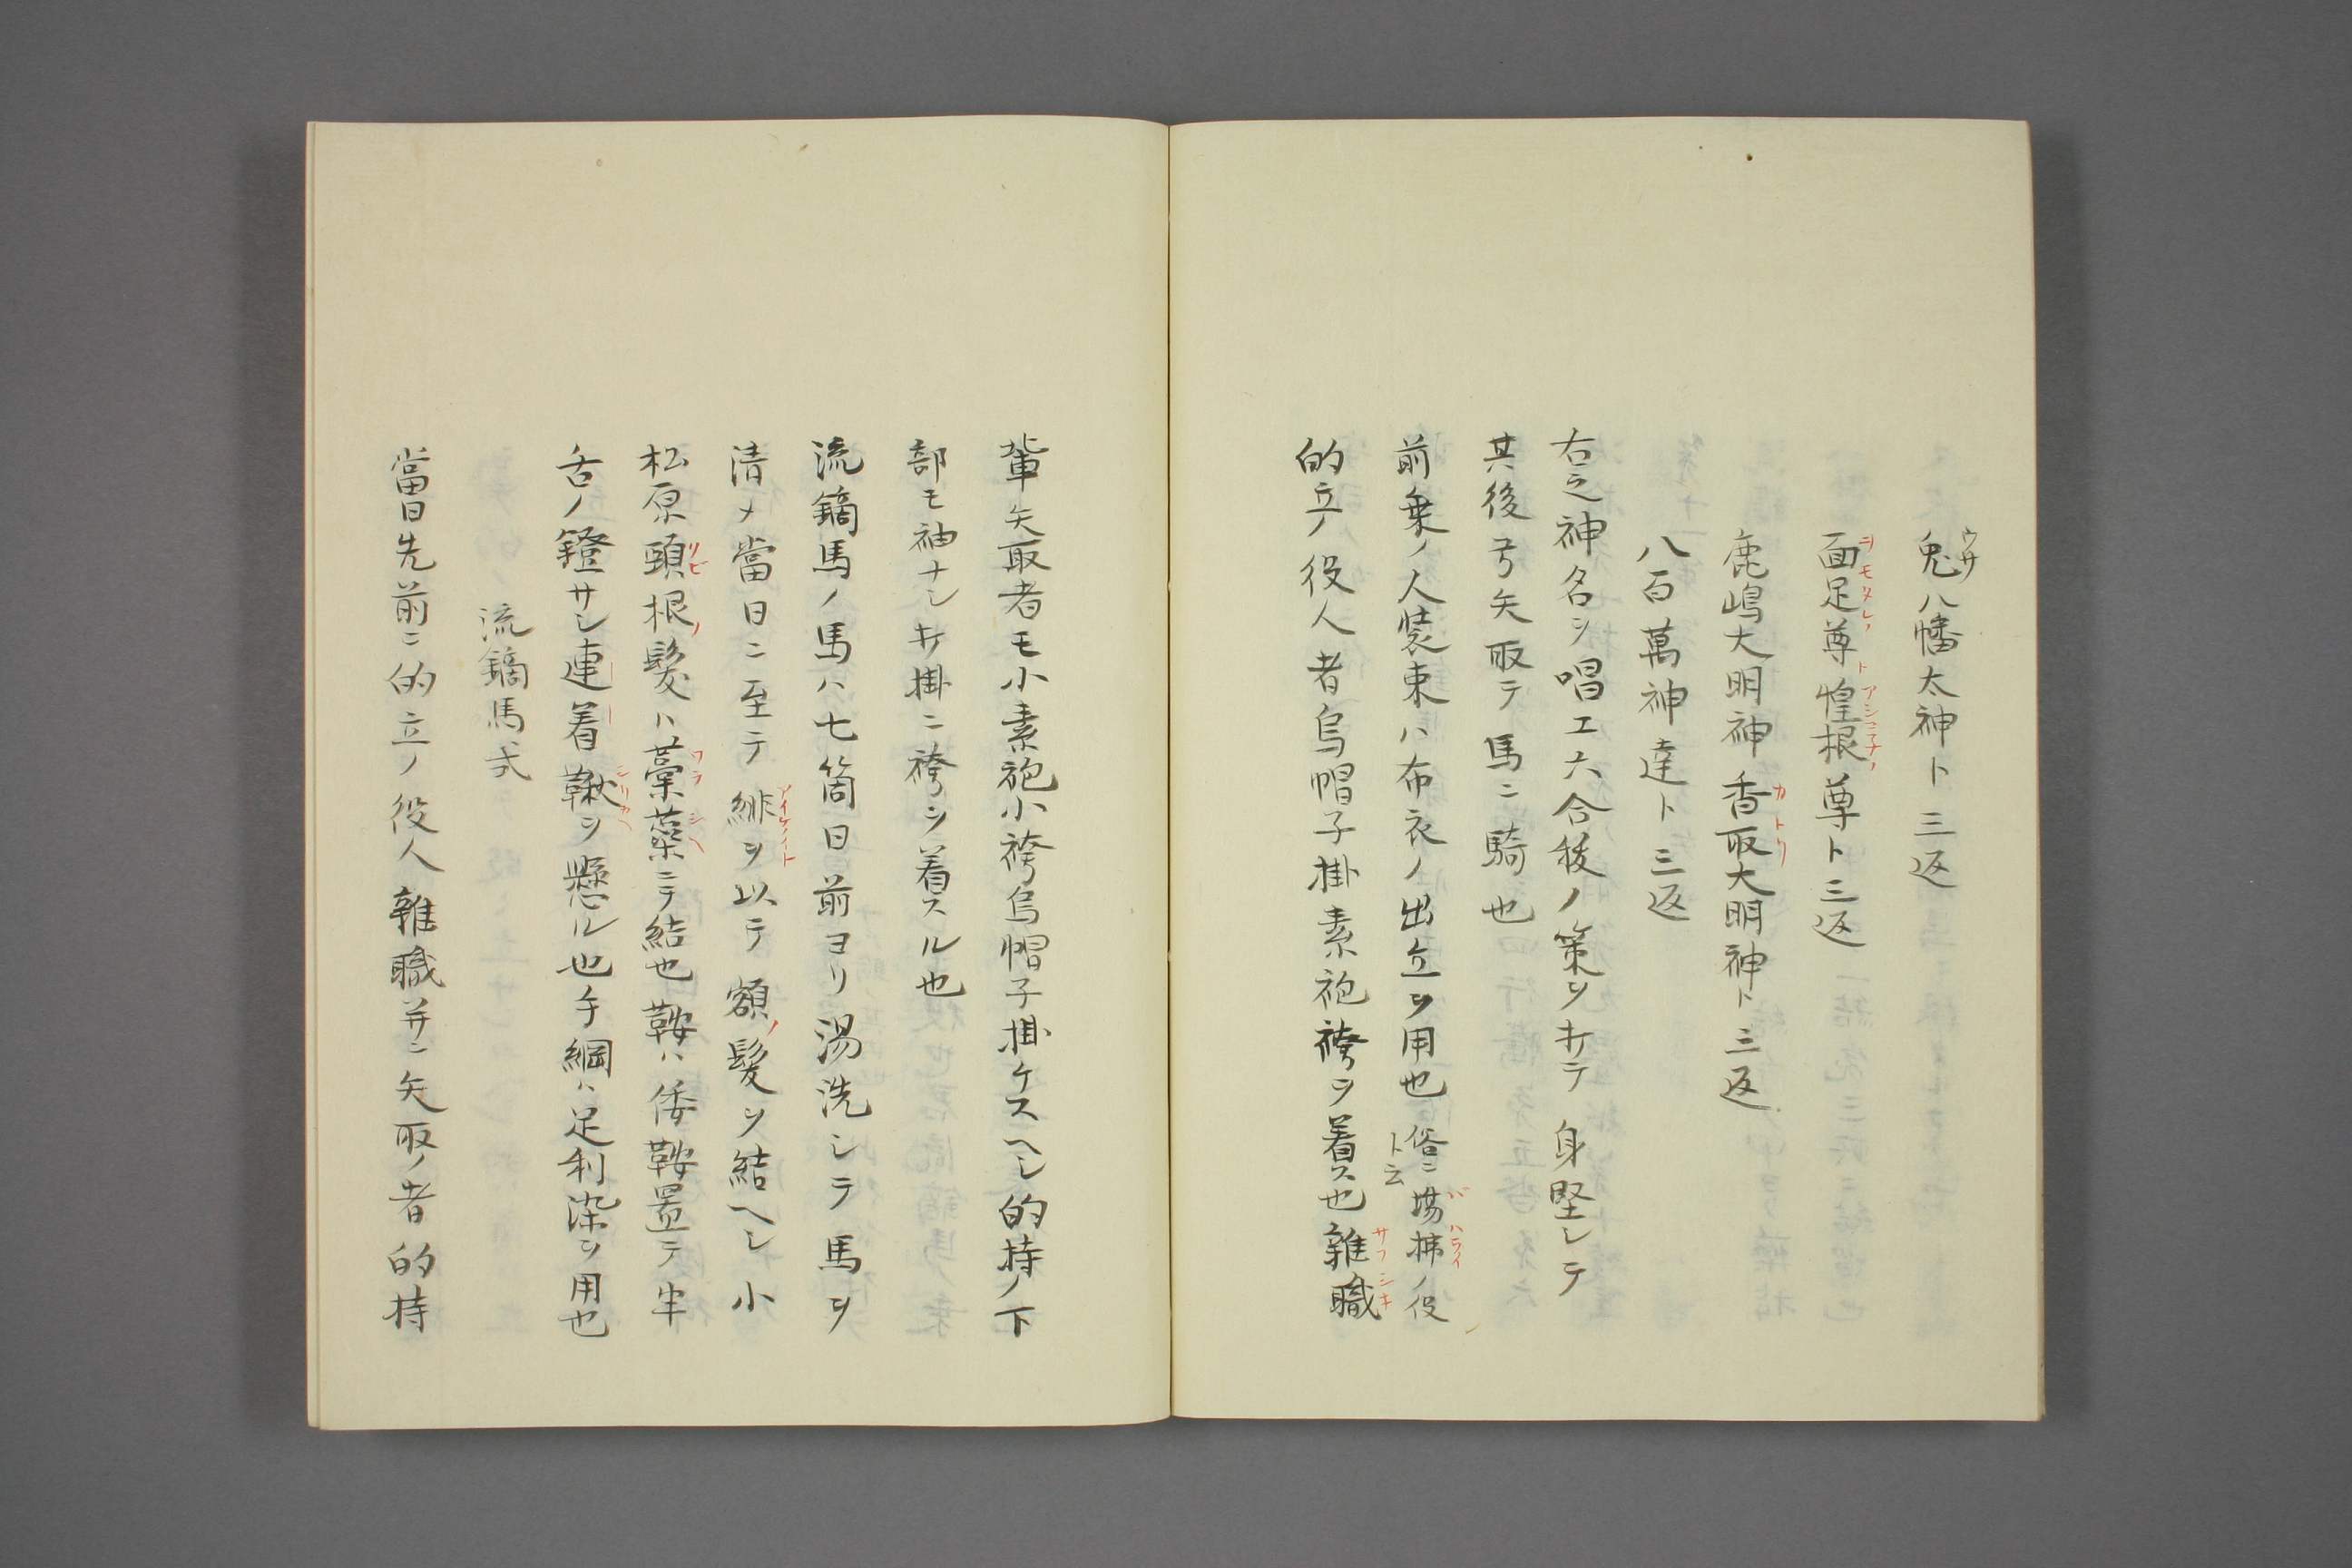 兎八幡太神ト三返
面足尊ト惶根尊ト三返
鹿嶋大明神香取大明神ト三返
八百萬神達ト三返
右之神名ヲ唱エ六合秡ノ策ヲキテ身堅シテ
其後弓矢取テ馬ニ騎也
前乗ノ人裝束ハ布衣ノ出立ヲ用也俗ニ場拂ノ役ト云
的立ノ役人者烏帽子掛素袍袴ヲ着ス也雜職
輩矢取者モ小素袍小袴烏帽子掛ケスヘシ的持ノ下
部モ袖ナシキ掛ニ袴ヲ着スル也
流鏑馬ノ馬ハ七箇日前ヨリ湯洗シテ馬ヲ
清メ當日ニ至テ緋ヲ以テ額ノ髪ヲ結ヘシ小
松原頭根ノ髪ハ藁蘂ニテ結也鞍ハ倭鞍置テ半
舌ノ鐙サシ連着鞦ヲ懸ル也手綱ハ足利染ヲ用也
流鏑馬式
當日先前ニ的立ノ役人雜職并ニ矢取ノ者的持